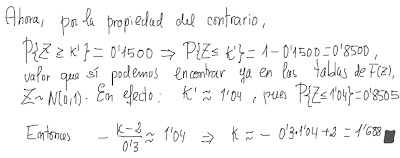 Ahora, por la propiedad del contrario,
P{Z ≥ K'} = 0'1500 ⇒ P{Z ≤ K'} = 1 - 0'1500 = 0'8500,
valor que sí podemos encontrar ya en las tablas de F(z),
Z ~ N(0,1). En efecto: K' ≈ 1'04, pues P{Z ≤ 1'04} = 0'8505
Entonces - (K-2)/0'3 ≈ 1'04 ⇒ K ≈ - 0'3·1'04 + 2 = 1'688 ■